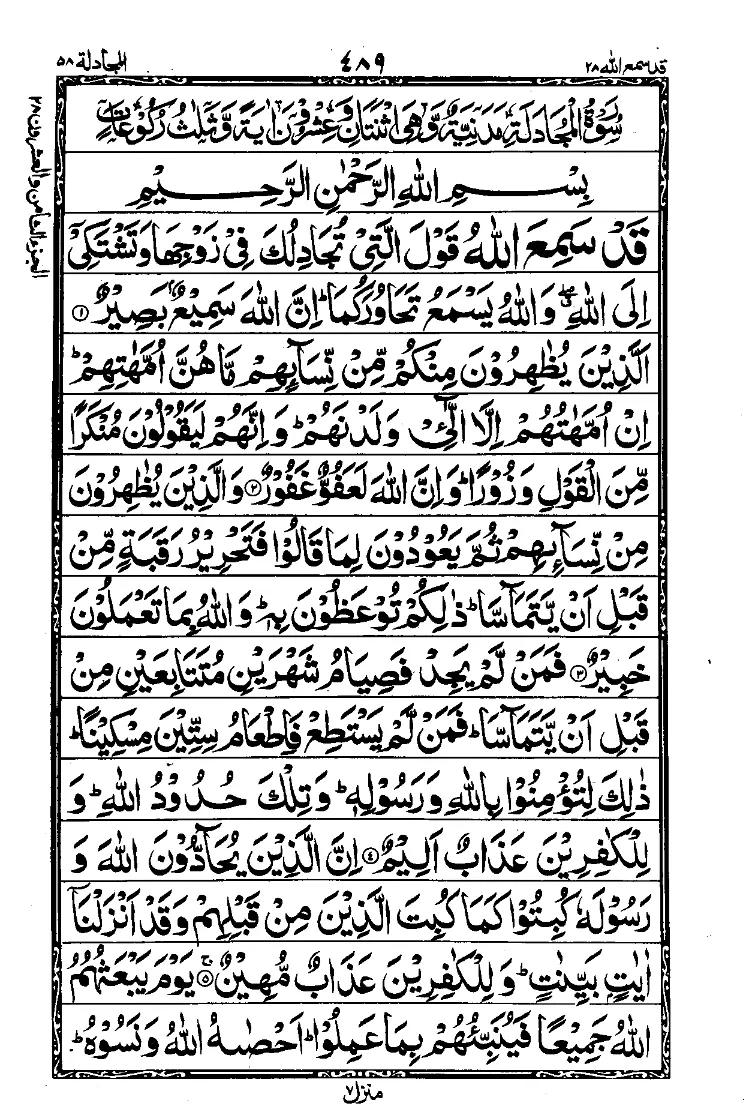 قد سمع الله ۲۸
٤٨٩
المجادلة ۵۸
الجزء الثامن والعشرون ۲۸
سُوۡرَةُ الۡمُجَادَلَةِ مَدَنِيَّةٌ وَّهِىَ اثۡنَتَانِ وَعِشۡرُوۡنَ اٰيَةً وَّثَلٰثُ رُكُوۡعَاتٍ
بِسۡمِ اللّٰهِ الرَّحۡمٰنِ الرَّحِيۡمِ
قَدۡ سَمِعَ اللّٰهُ قَوۡلَ الَّتِىۡ تُجَادِلُكَ فِىۡ زَوۡجِهَا وَتَشۡتَكِىۡۤ
اِلَى اللّٰهِ ۖ وَاللّٰهُ يَسۡمَعُ تَحَاوُرَكُمَا ؕ اِنَّ اللّٰهَ سَمِيۡعٌۢ بَصِيۡرٌ ۱
اَلَّذِيۡنَ يُظٰهِرُوۡنَ مِنۡكُمۡ مِّنۡ نِّسَآٮِٕهِمۡ مَّا هُنَّ اُمَّهٰتِهِمۡ ؕ
اِنۡ اُمَّهٰتُهُمۡ اِلَّا الّٰٓـىِٔۡ وَلَدۡنَهُمۡ ؕ وَاِنَّهُمۡ لَيَقُوۡلُوۡنَ مُنۡكَرًا
مِّنَ الۡقَوۡلِ وَزُوۡرًا ؕ وَاِنَّ اللّٰهَ لَعَفُوٌّ غَفُوۡرٌ ۲ وَالَّذِيۡنَ يُظٰهِرُوۡنَ
مِنۡ نِّسَآٮِٕهِمۡ ثُمَّ يَعُوۡدُوۡنَ لِمَا قَالُوۡا فَتَحۡرِيۡرُ رَقَبَةٍ مِّنۡ
قَبۡلِ اَنۡ يَّتَمَآسَّا ؕ ذٰلِكُمۡ تُوۡعَظُوۡنَ بِهٖ ؕ وَاللّٰهُ بِمَا تَعۡمَلُوۡنَ
خَبِيۡرٌ ۳ فَمَنۡ لَّمۡ يَجِدۡ فَصِيَامُ شَهۡرَيۡنِ مُتَتَابِعَيۡنِ مِنۡ
قَبۡلِ اَنۡ يَّتَمَآسَّا ؕ فَمَنۡ لَّمۡ يَسۡتَطِعۡ فَاِطۡعَامُ سِتِّيۡنَ مِسۡكِيۡنًا ؕ
ذٰلِكَ لِتُؤۡمِنُوۡا بِاللّٰهِ وَرَسُوۡلِهٖ ؕ وَتِلۡكَ حُدُوۡدُ اللّٰهِ ؕ وَ
لِلۡكٰفِرِيۡنَ عَذَابٌ اَلِيۡمٌ ٤ اِنَّ الَّذِيۡنَ يُحَآدُّوۡنَ اللّٰهَ وَ
رَسُوۡلَهٗ كُبِتُوۡا كَمَا كُبِتَ الَّذِيۡنَ مِنۡ قَبۡلِهِمۡ وَقَدۡ اَنۡزَلۡنَاۤ
اٰيٰتٍۭ بَيِّنٰتٍ ؕ وَ لِلۡكٰفِرِيۡنَ عَذَابٌ مُّهِيۡنٌ ۚ ۵ يَوۡمَ يَبۡعَثُهُمُ
اللّٰهُ جَمِيۡعًا فَيُنَبِّئُهُمۡ بِمَا عَمِلُوۡا ؕ اَحۡصٰٮهُ اللّٰهُ وَنَسُوۡهُ ؕ
منزل ۷